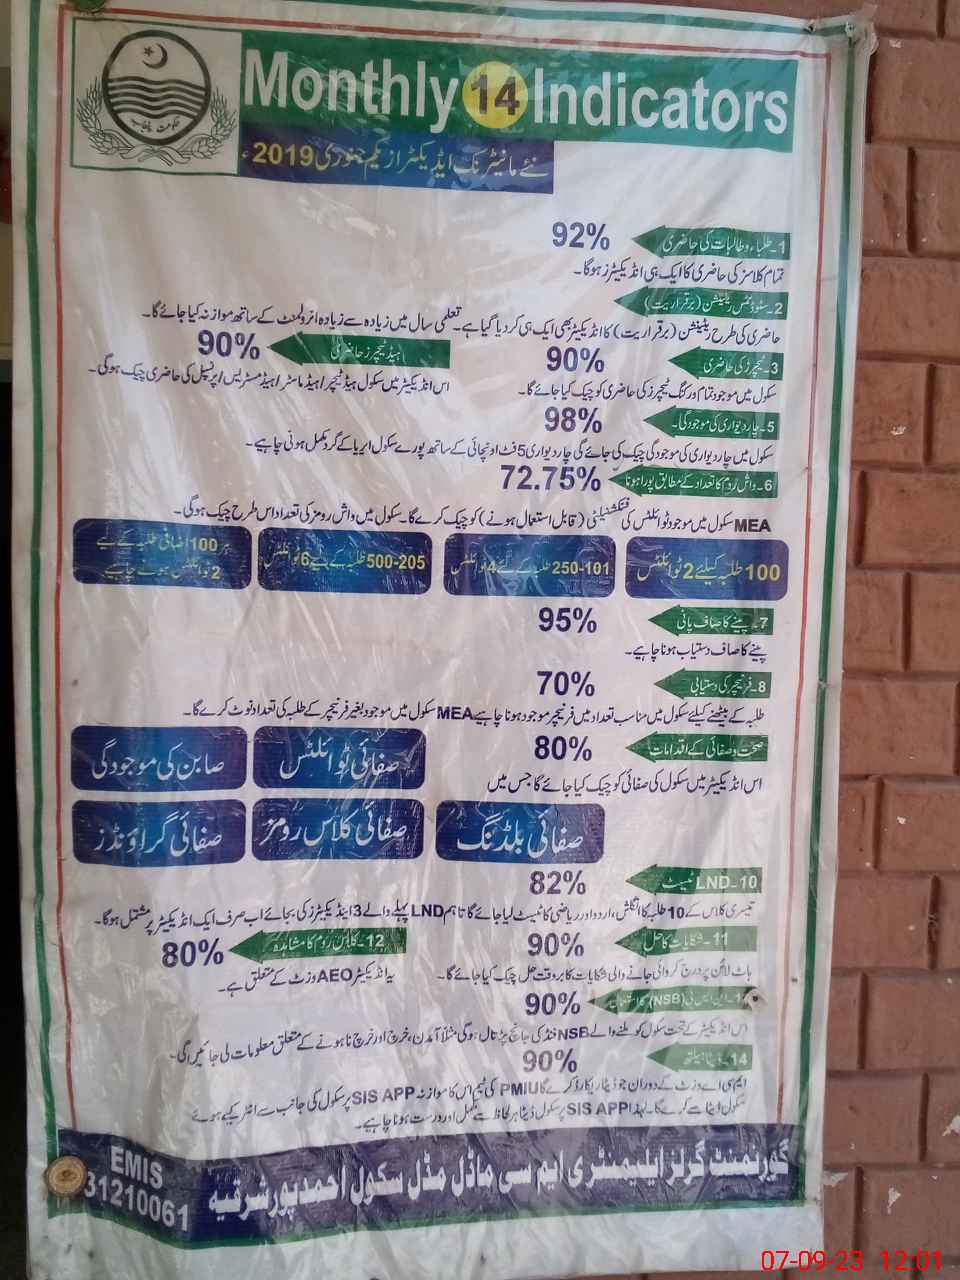 حکومت پنجاب
Monthly 14 Indicators
نئے مانیٹرنگ انڈیکیٹرز یکم جنوری 2019ء
1۔ طلباء و طالبات کی حاضری 92%
تمام کلاسز کی حاضری کا ایک ہی انڈیکیٹر ہوگا۔
2۔ سٹوڈنٹس ریٹینشن (برقراریت)
حاضری کی طرح ریٹینشن (برقراریت) کا انڈیکیٹر بھی ایک ہی کر دیا گیا ہے۔ تعلیمی سال میں زیادہ سے زیادہ انرولمنٹ کے ساتھ موازنہ کیا جائے گا۔
3۔ ٹیچرز کی حاضری 90% ہیڈ ٹیچرز حاضری 90%
سکول میں موجود تمام ورکنگ ٹیچرز کی حاضری کو چیک کیا جائے گا۔ اس انڈیکیٹر میں سکول ہیڈ ٹیچر / ہیڈ ماسٹر / ہیڈ مسٹریس / پرنسپل کی حاضری چیک ہوگی۔
5۔ چار دیواری کی موجودگی۔ 98%
سکول میں چار دیواری کی موجودگی چیک کی جائے گی چار دیواری 5 فٹ اونچائی کے ساتھ پورے سکول ایریا کے گرد مکمل ہونی چاہیے۔
6۔ واش روم کا تعداد کے مطابق پورا ہونا 72.75%
MEA سکول میں موجود ٹوائلٹس کی فنکشنیلٹی (قابل استعمال ہونے) کو چیک کرے گا۔ سکول میں واش رومز کی تعداد اس طرح چیک ہوگی۔
100 طلبہ کیلئے 2 ٹوائلٹس 101-250 طلبہ کے لئے 4 ٹوائلٹس 205-500 طلبہ کے لیے 6 ٹوائلٹس ہر 100 اضافی طلبہ کے لیے
2 ٹوائلٹس ہونے چاہیے
7۔ پینے کا صاف پانی 95%
پینے کا صاف دستیاب ہونا چاہیے۔
8۔ فرنیچر کی دستیابی 70%
طلبہ کے بیٹھنے کیلئے سکول میں مناسب تعداد میں فرنیچر موجود ہونا چاہیے MEA سکول میں موجود بغیر فرنیچر کے طلبہ کی تعداد نوٹ کرے گا۔
صحت و صفائی کے اقدامات 80%
اس انڈیکیٹر میں سکول کی صفائی کو چیک کیا جائے گا جس میں
صفائی ٹوائلٹس صابن کی موجودگی
صفائی بلڈنگ صفائی کلاس رومز صفائی گراؤنڈز
10۔ LND ٹیسٹ 82%
تیسری کلاس کے 10 طلبہ کا انگلش، اردو اور ریاضی کا ٹیسٹ لیا جائے گا تاہم LND پہلے والے 3 انڈیکیٹرز کی بجائے اب صرف ایک انڈیکیٹر پر مشتمل ہوگا۔
11۔ شکایات کا حل 90% 12۔ کلاس روم کا مشاہدہ 80%
ہاٹ لائن پر درج کروائی جانے والی شکایات کا بروقت حل چیک کیا جائے گا۔ یہ انڈیکیٹر AEO وزٹ کے متعلق ہے۔
این ایس بی (NSB) کا استعمال 90%
اس انڈیکیٹر کے تحت سکول کو ملنے والے NSB فنڈ کی جانچ پڑتال ہوگی مثلاً آمدن، خرچ اور خرچ نا ہونے کے متعلق معلومات لی جائیں گی۔
14۔ ڈیٹا ہیلتھ 90%
ایم ای اے وزٹ کے دوران جو ڈیٹا ریکارڈ کرے گا PMIU کی ٹیم اس کا موازنہ SIS APP پر سکول کی جانب سے انٹر کیے ہوئے
سکول ڈیٹا سے کرے گا۔ لہذا SIS APP پر سکول ڈیٹا ہر لحاظ سے مکمل اور درست ہونا چاہیے۔
گورنمنٹ گرلز ایلیمنٹری ایم سی ماڈل مڈل سکول احمد پور شرقیہ
EMIS
31210061
07-09-23 12:01